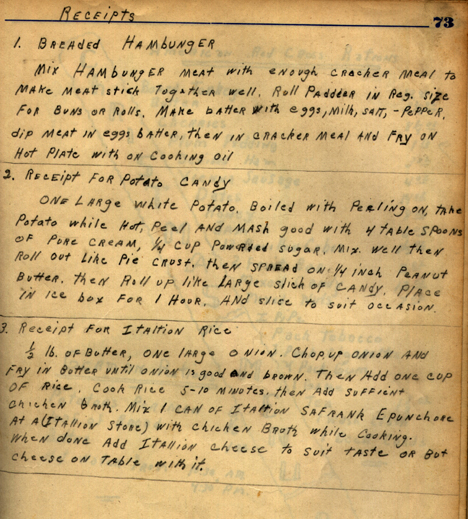 Receipts 73
1. Breaded Hambunger
Mix Hambunger meat with enough cracker meal to
make meat stick Together well. Roll Paddder in Reg. size
for Buns or Rolls. Make batter with eggs, milk, salt, - Pepper.
dip meat in eggs batter, then in cracker meal and Fry on
Hot Plate with on Cooking oil
2. Receipt for Potato Candy
One Large White Potato. Boiled with Peeling on, take
Potato while Hot, Peel and Mash good with 4 table spoons
of Pure Cream, 1/4 cup Powdded sugar. Mix. well then
Roll out like Pie Crust. then spread on 1/4 inch Peanut
Butter. then Roll up like large stick of candy. Place
in ice box for 1 Hour. And slice to suit occasion.
3. Receipt for Italtion Rice
1/2 lb. of Butter, one large onion. Chop up onion and
fry in Butter until onion is good and brown. Then Add one cup
of Rice. Cook Rice 5-10 minutes. then Add suffient
chicken broth. Mix 1 can of Italtion Safrank Epunchore
At a (Itallion Store) with chicken Broth while cooking.
When done Add Itallion cheese to suit taste or But
cheese on Table with it.